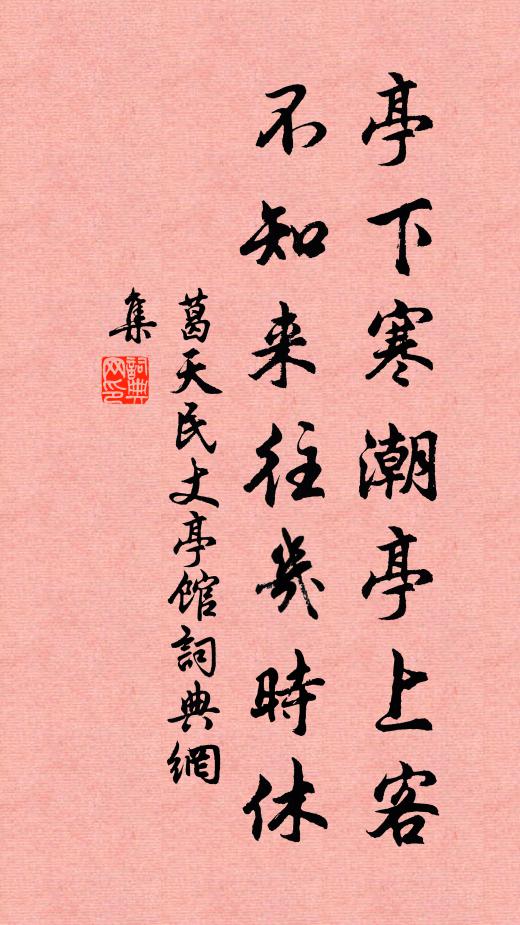 亭下寒潮亭上客
不知来往幾時休
葛天民丈亭馆詞典網
集
詞典網印